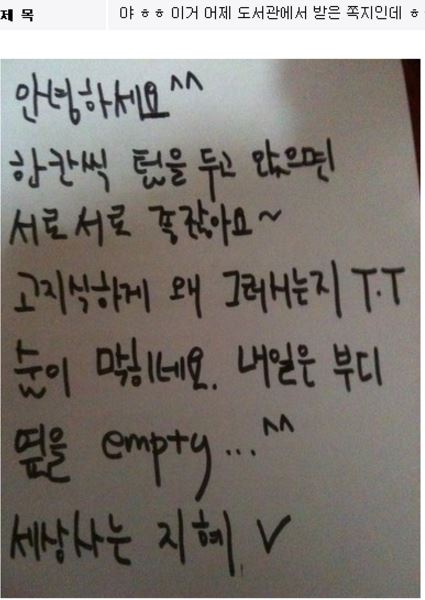 제 목 야 ㅎㅎ 이거 어제 도서관에서 받은 쪽지인데 ㅎ
안녕하세요^^
한칸씩 텀을 두고 앉으면
서로서로 좋잖아요~
고지식하게 왜 그러시는지 T.T
숨이 막히네요. 내일은 부디
옆을 empty...^^
세상사는 지혜 V